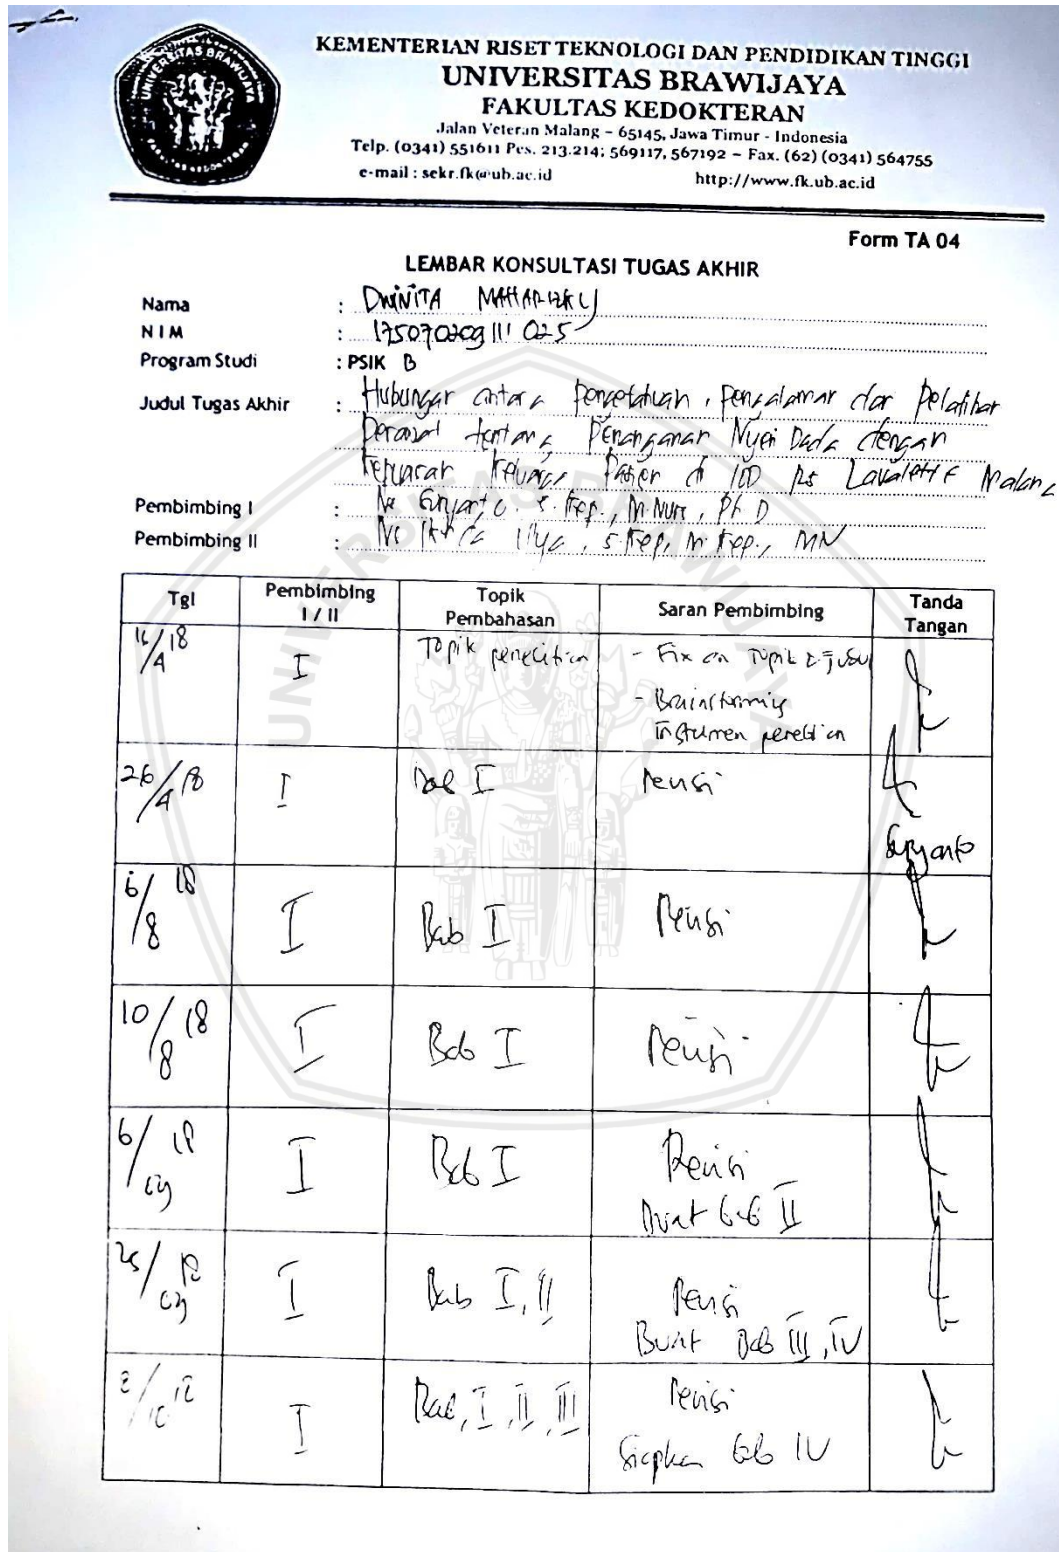 KEMENTERIAN RISET TEKNOLOGI DAN PENDIDIKAN TINGGI
UNIVERSITAS BRAWIJAYA
FAKULTAS KEDOKTERAN
Jalan Veteran Malang – 65145, Jawa Timur - Indonesia
Telp. (0341) 551611 Pes. 213.214; 569117, 567192 – Fax. (62) (0341) 564755
e-mail : sekr.fk@ub.ac.id http://www.fk.ub.ac.id
Form TA 04
LEMBAR KONSULTASI TUGAS AKHIR
Nama : DWINITA
NIM :
Program Studi : PSIK B
Judul Tugas Akhir : Hubungan antara Pengetahuan, Pengalaman dan Pelatihan
Perawat tentang Penanganan Nyeri Dada dengan
Kepuasan Keluarga Pasien di IGD RS Lavalette Malang
Pembimbing I : S.Kep., M.Nurs, Ph.D
Pembimbing II : S.Kep, M.Kep., MN
Tgl Pembimbing I / II Topik Pembahasan Saran Pembimbing Tanda Tangan
I Topik penelitian - Fix on Topik
- Brainstorming
Instrumen penelitian
26/4 18 I Bab I Revisi
Suryanto
6/8 18 I Bab I Revisi
10/8 18 I Bab I Revisi
6/09 18 I Bab I Revisi
Buat bab II
25/09 18 I Bab I, II Revisi
Buat Bab III, IV
I Bab, I, II, III Revisi
Siapkan bab IV
UNIVERSITAS BRAWIJAYA